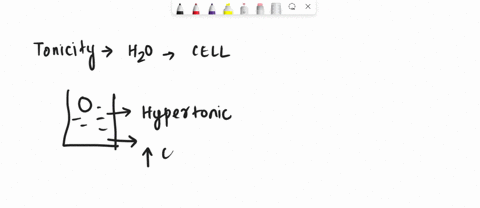 Tonicity → H₂O → CELL
Hypertonic
↑ C